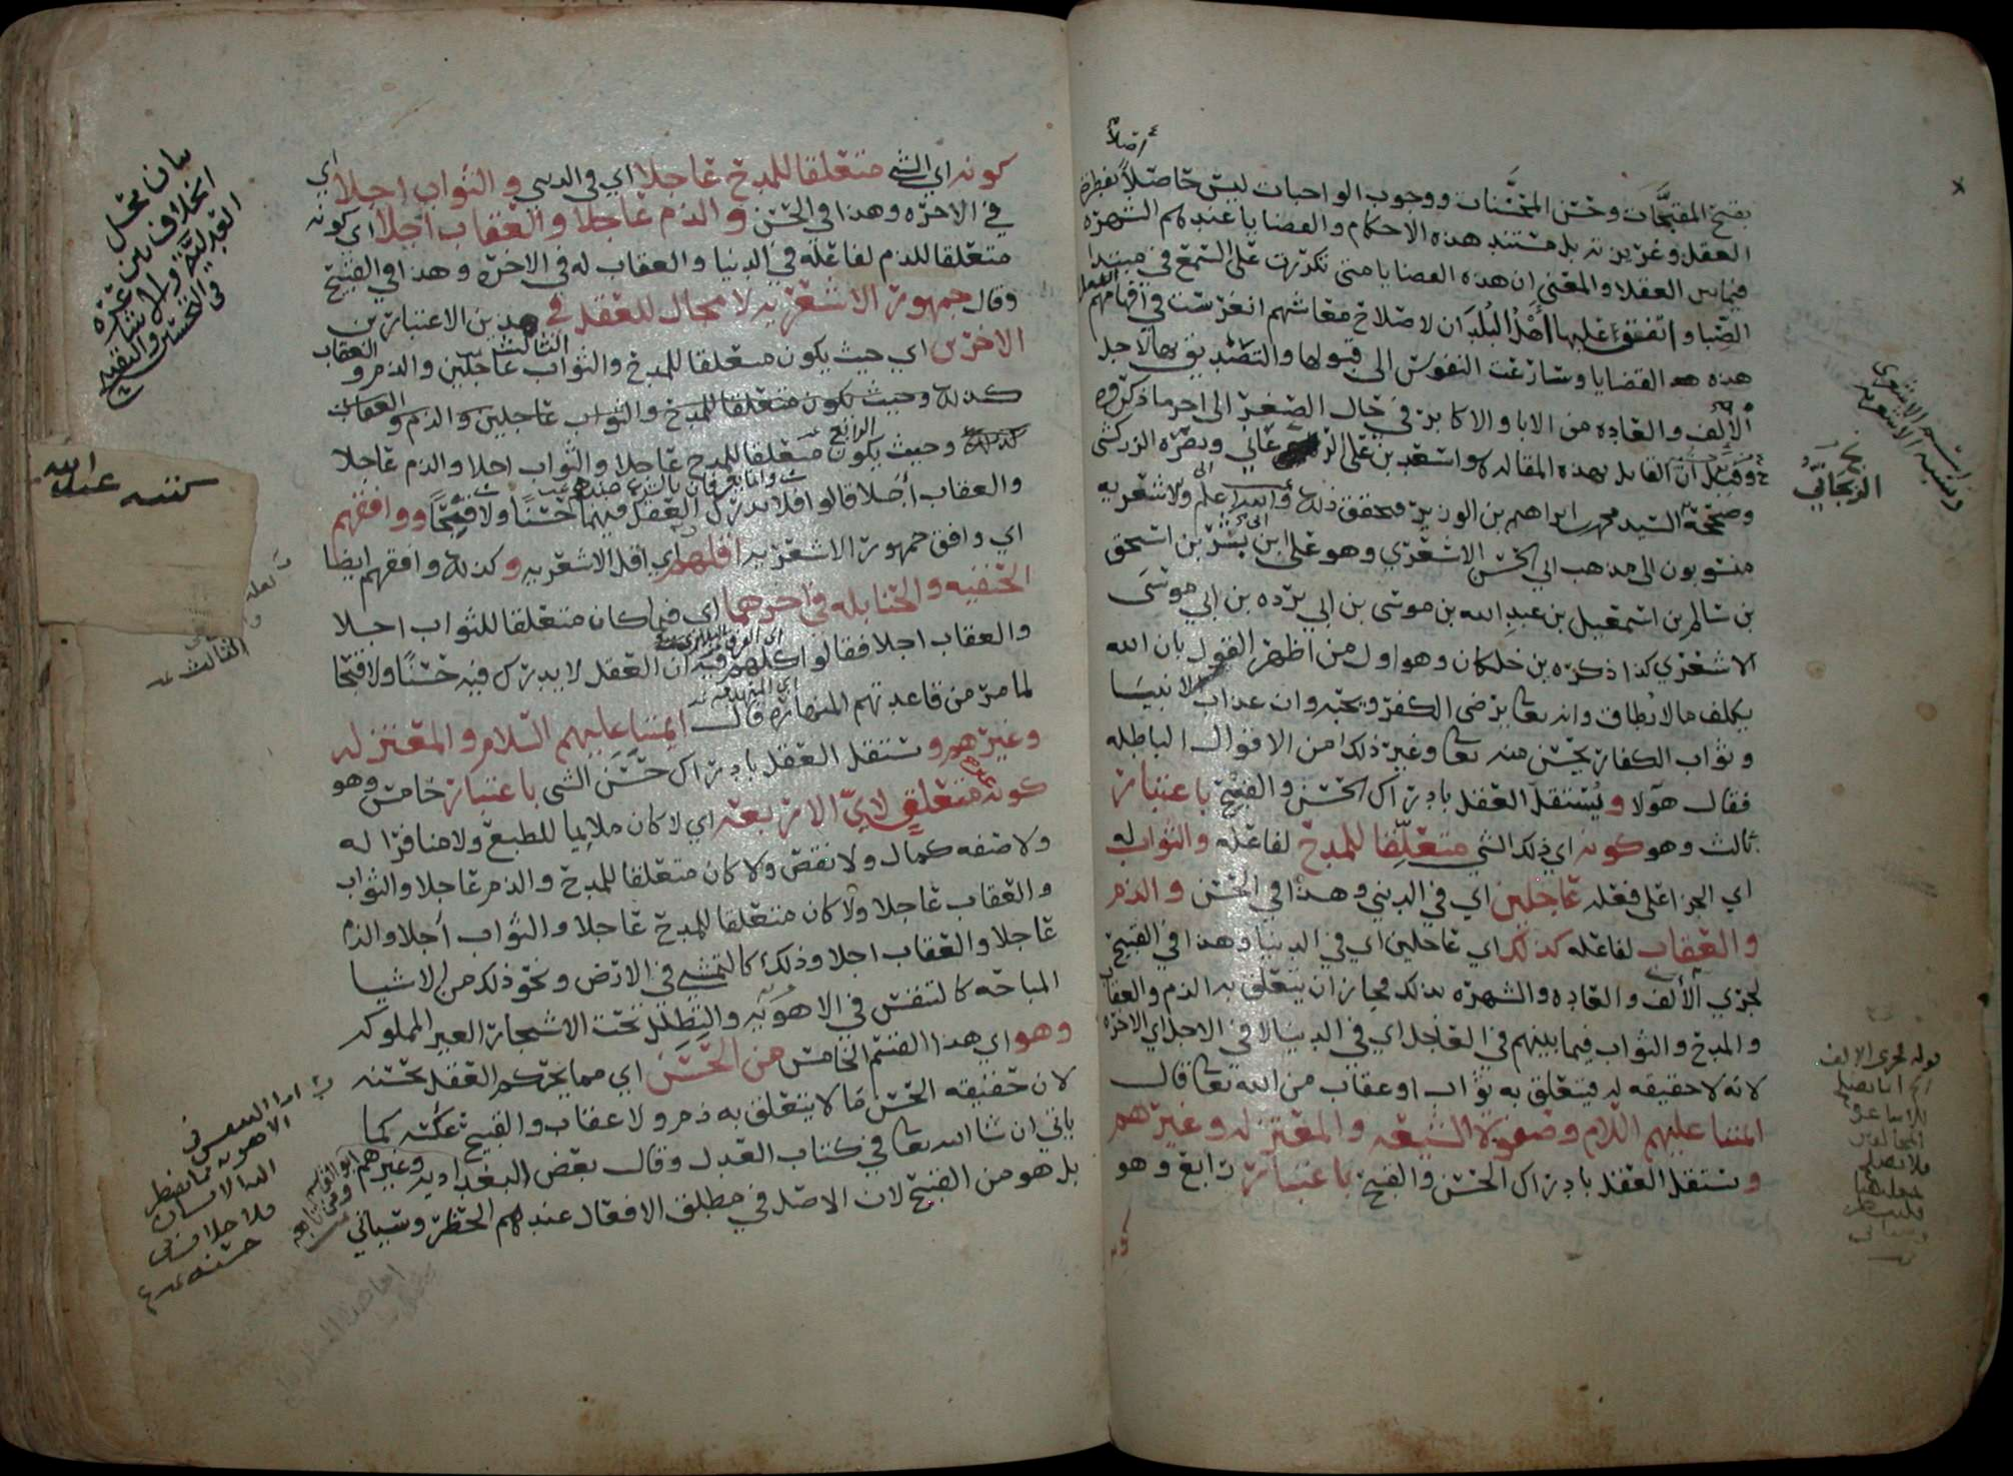 أصلاً
بقبح المقبحات وحسن المحسنات ووجوب الواجبات ليس حاصلاً بفطرة
العقل وغريزته بل مستند هذه الاحكام والقضايا عندهم الشهره
فيما بين العقلا والمعنى ان هذه القضايا متى تكررت على السمع في مبتدا
الصبا واتفق عليها اهل البلدان لاصلاح معاشهم انغرست في افهامهم
هذه القضايا وسارعت النفوس الى قبولها والتصديق بها لاجل
الإلف والعاده من الابا والاكابر في حال الصغر الى اخر ما ذكروه
وقيل ان القايل بهذه المقاله هو اسعد بن علي الزنجاني ونصره الزركشي
وصححه السيد محمد بن ابراهيم بن الوزير ويحقق ذلك والله اعلم والاشعريه
منسوبون الى مذهب ابي الحسن الاشعري وهو علي ابن ابي بشر بن اسحق
بن سالم بن اسمعيل بن عبد الله بن موسى بن ابي برده بن ابي موسى
الاشعري كذا ذكره بن خلكان وهو اول من اظهر القول بان الله
يكلف مالا يطاق وانه تعا يرضى الكفر ويحبه وان عذاب الانبيا
وثواب الكفار يحسن منه تعا وغير ذلك من الاقوال الباطله
فقال هولا ويستقل العقل بادراك الحسن والقبح باعتبار
ثالث وهو كونه اي ذلك الشي متعلقا للمدح لفاعله والثواب له
اي الجزا على فعله عاجلين اي في الدنيي وهذا في الحسن والذم
والعقاب لفاعله كذلك اي عاجلين اي في الدنيا وهذا في القبيح
لجري الألف والعاده والشهره بذلك فجاز ان يتعلق به الذم والعقاب
والمدح والثواب فيما بينهم في العاجل اي في الدنيا لا في الاجل اي الاخره
لانه لا حقيقه له فيتعلق به ثواب او عقاب من الله تعا قال
ائمتنا عليهم السلام وصفوة الشيعه والمعتزله وغيرهم
ويستقل العقل بادراك الحسن والقبح باعتبار رابع وهو
الزنجاني
قوله لجري الالف
كونه اي الشي متعلقا للمدح عاجلا اي في الدنيي والثواب اجلا اي
في الاخره وهذا في الحسن والذم عاجلا والعقاب اجلا اي كونه
متعلقا للذم لفاعله في الدنيا والعقاب له في الاخره وهذا في القبيح
وقال جمهور الاشعريه لا مجال للعقل في هذين الاعتبارين
الاخرين اي حيث يكون متعلقا للمدح والثواب عاجلين والذم والعقاب
الثالث
كذلك وحيث يكون متعلقا للمدح والثواب عاجلين والذم والعقاب
كذلك وحيث يكون متعلقا للمدح عاجلا والثواب اجلا والذم عاجلا
الرابع
والعقاب أجلا قالوا فلا يدرك العقل فيهما حسنًا ولا قبحًا ووافقهم
اي وافق جمهور الاشعريه اقلهم اي اقل الاشعريه وكذلك وافقهم ايضا
الحنفيه والحنابله في اخرهما اي فيما كان متعلقا للثواب اجلا
والعقاب اجلا فقالوا كلهم فيه ان العقل لا يدرك فيه حسنًا ولا قبحا
لما مر من قاعدتهم المنهاره قال ائمتنا عليهم السلام والمعتزله
وغيرهم ويستقل العقل بادراك حسن الشي باعتبار خامس وهو
كونه غير متعلق لاي الاربعه اي لا كان ملايما للطبع ولا منافرا له
ولا صفه كمال ولا نقص ولا كان متعلقا للمدح والذم عاجلا والثواب
والعقاب عاجلا ولا كان متعلقا للمدح عاجلا والثواب أجلا والذم
عاجلا والعقاب اجلا وذلك كالتمشي في الارض ونحو ذلك من الاشيا
المباحه كالتنفس في الاهويه والتظلل تحت الاشجار الغير المملوكه
وهو اي هذا القسم الخامس من الحسن اي مما يحكم العقل بحسنه
لان حقيقه الحسن مالا يتعلق به ذم ولا عقاب والقبيح عكسه كما
ياتي ان شا الله تعا في كتاب العدل وقال بعض البغداديه وغيرهم
بل هو من القبيح لان الاصل في مطلق الافعال عندهم الحظر وسياتي
بيان محل
الخلاف بين
العدليه والاشاعره
في التحسين والتقبيح
كتبه عبد الله
الثالث
اما التنفس في
الاهويه فمضطر
اليه الانسان
فلا خلاف في
حسنه